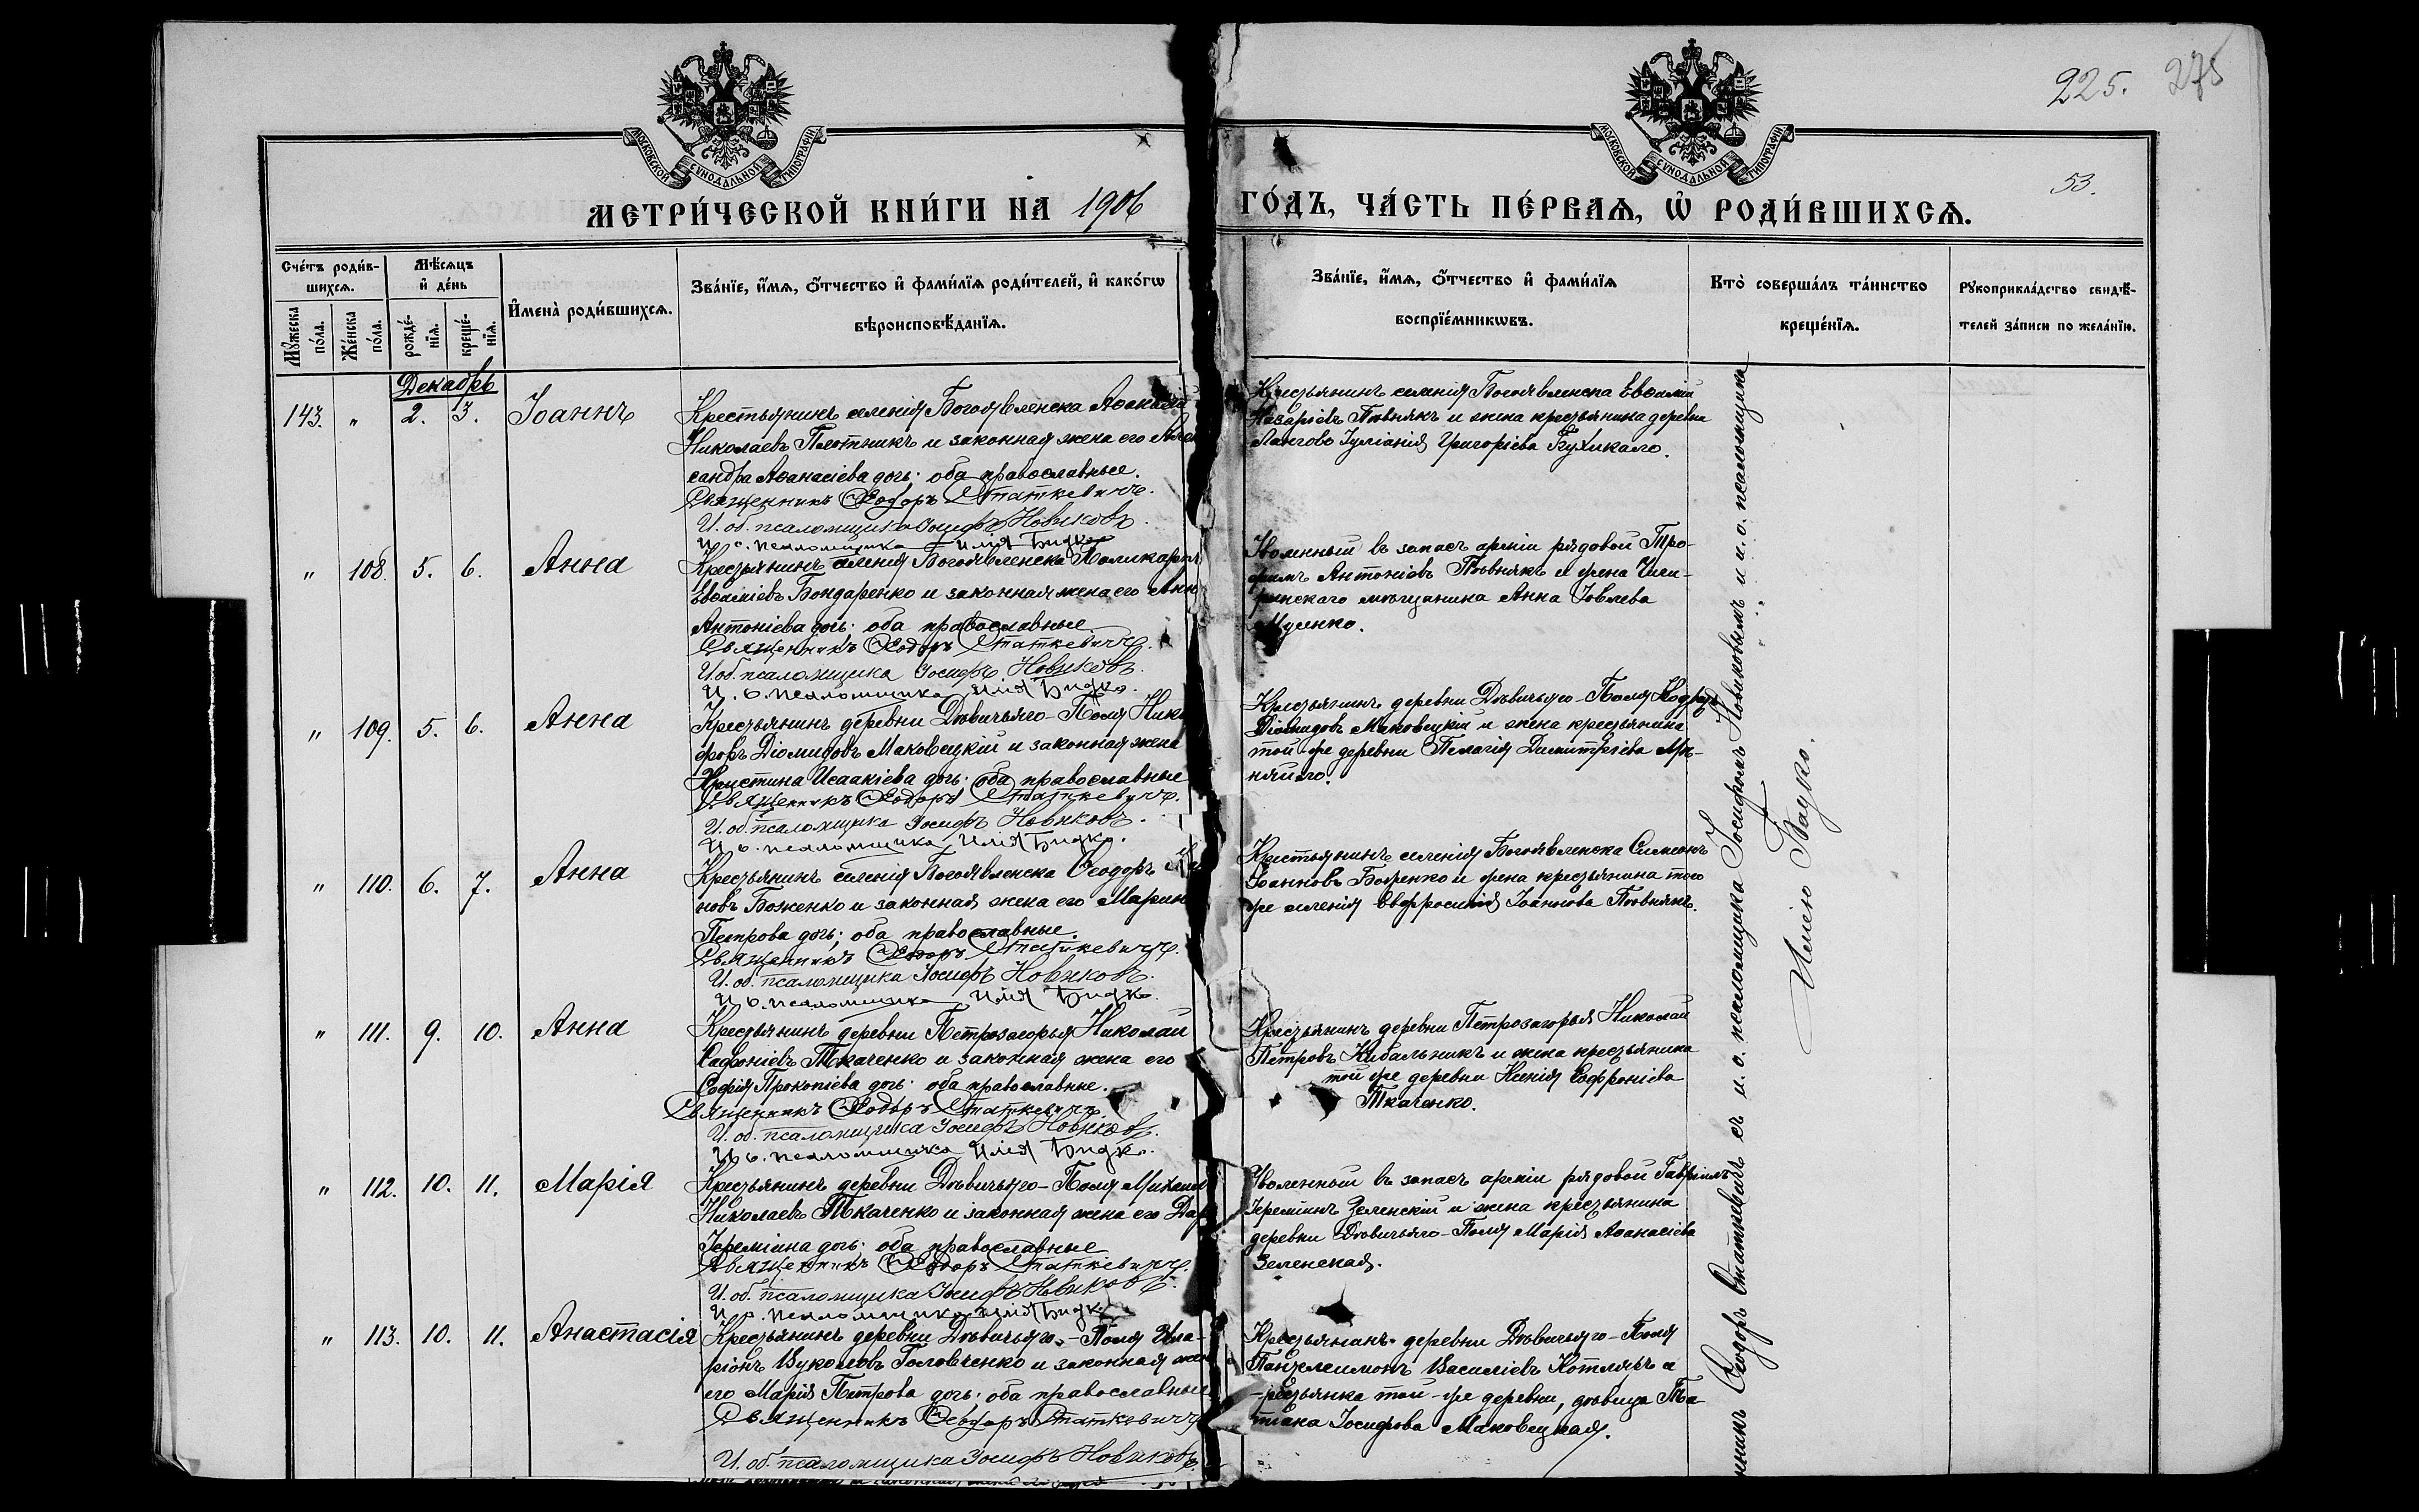 225. 275
53.
МОСКОВСКОЙ СУНОДАЛЬНОЙ ТИПОГРАФІИ
МОСКОВСКОЙ СУНОДАЛЬНОЙ ТИПОГРАФІИ
МЕТРИ́ЧЕСКОЙ КНИ́ГИ НА 1906 ГО́ДЪ, ЧА́СТЬ ПЕ́РВАѦ, Ѡ РОДИ́ВШИХСѦ.
Сче́тъ роди́в-
шихсѧ.
Мꙋ́жеска
по́ла.
Же́нска
по́ла.
Мѣ́сѧцъ
и҆ де́нь
рожде́-
нїѧ.
креще́-
нїѧ.
И҆мена̀ роди́вшихсѧ.
Зва́нїе, и҆́мѧ, ѻ҆́тчество и҆ фами́лїѧ роди́телей, и҆ како́гѡ
вѣроисповѣ́данїѧ.
Зва́нїе, и҆́мѧ, ѻ҆́тчество и҆ фами́лїѧ
воспрїе́мникѡвъ.
Кто̀ соверша́лъ та́инство
креще́нїѧ.
Рꙋкоприкла́дство свидѣ́-
телей за́писи по жела́нїю.
Декабрь
143. " 2. 3. Іоаннъ
Крестьянинъ селенія Богоявленска Аѳанасій
Николаевъ Плотникъ и законная жена его Алек
сандра Аѳанасіева дочь; оба православные.
Священникъ Ѳеодоръ Статкевичъ.
И. об. псаломщика Іосифъ Новиковъ.
И. о. псаломщика Илія Бидко
Крестьянинъ селенія Богоявленска Евѳимій
Назаріевъ Пивнякъ и жена крестьянина деревни
Лангово Іуліанія Григоріева Бухикало.
" 108. 5. 6. Анна
Крестьянинъ селенія Богоявленска Поликарпъ
Евѳиміевъ Бондаренко и законная жена его Анн
Антоніева дочь; оба православные
Священникъ Ѳеодоръ Статкевичъ.
И. об. псаломщика Іосифъ Новиковъ.
И. о. псаломщика Илія Бидко.
Уволенный въ запасъ арміи рядовой Тро-
фимъ Антоніевъ Пивнякъ и жена Чиги-
ринскаго мѣщанина Анна Іовлева
" 109. 5. 6. Анна
Крестьянинъ деревни Дѣвичьяго-Поля Ники
форъ Діомидовъ Маковецкій и законная жена
Христина Исаакіева дочь; оба православные
Священникъ Ѳеодоръ Статкевичъ.
И. об. псаломщика Іосифъ Новиковъ.
И. о. псаломщика Илія Бидко.
Крестьянинъ деревни Дѣвичьяго-Поля
Діомидовъ Маковецкій и жена крестьянина
той-же деревни Пелагія Димитріева
" 110. 6. 7. Анна
Крестьянинъ селенія Богоявленска Ѳеодоръ
новъ Боженко и законная жена его Марин
Петрова дочь; оба православные.
Священникъ Ѳеодоръ Статкевичъ.
И. об. псаломщика Іосифъ Новиковъ.
И. о. псаломщика Илія Бидко.
Крестьянинъ селенія Богоявленска Симеонъ
Іоанновъ Боженко и жена крестьянина того
же селенія Евфросинія Іоаннова Пивнякъ.
" 111. 9. 10. Анна
Крестьянинъ деревни Петрозагорья Николай
Сафоніевъ Ткаченко и законная жена его
Софія Прокопіева дочь; оба православные.
Священникъ Ѳеодоръ Статкевичъ
И. об. псаломщика Іосифъ Новиковъ.
И. о. псаломщика Илія Бидко.
Крестьянинъ деревни Петрозагорья Николай
Петровъ Кибальникъ и жена крестьянина
той же деревни Ксенія Софроніева
Ткаченко.
" 112. 10. 11. Марія
Крестьянинъ деревни Дѣвичьяго-Поля Михаил
Николаевъ Ткаченко и законная жена его Дар
Іереміина дочь; оба православные
Священникъ Ѳеодоръ Статкевичъ.
И. об. псаломщика Іосифъ Новиковъ.
И. о. псаломщика Илія Бидко
Уволенный въ запасъ арміи рядовой Гавріилъ
Іереміинъ Зеленскій и жена крестьянина
деревни Дѣвичьяго-Поля Марія Аѳанасіева
Зеленская.
" 113. 10. 11. Анастасія
Крестьянинъ деревни Дѣвичьяго-Поля Ила-
ріонъ Вуколовъ Головченко и законная жен
его Марія Петрова дочь; оба православные
Священникъ Ѳеодоръ Статкевичъ
И. об. псаломщика Іосифъ Новиковъ.
Крестьянинъ деревни Дѣвичьяго-Поля
Пантелеимонъ Василіевъ Котляръ и
рестьянка той-же деревни, дѣвица Та-
тіана Іосифова Маковецкая.
нникъ Ѳеодоръ Статкевичъ съ и. о. псаломщика Іосифомъ Новиковымъ и и. о. псаломщика
Иліею Бидко.